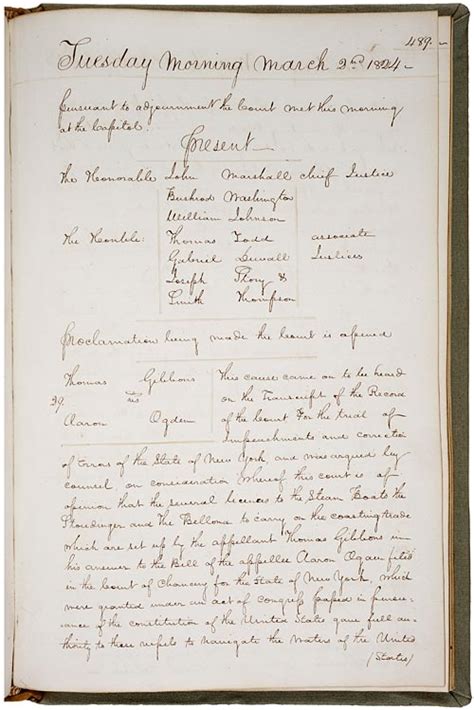 489.
Tuesday Morning March 2nd 1824
Pursuant to adjournment the Court met this morning
at the Capitol.
Present
The Honorable John Marshall chief Justice
Bushrod Washington
William Johnson
The Honble: Thomas Todd associate
Gabriel Duvall Justices
Joseph Story &
Smith Thompson
Proclamation being made the Court is opened
Thomas Gibbons
29. vs
Aaron Ogden
This cause came on to be heard
on the Transcript of the Record
of the Court for the trial of
Impeachments and correction
of Errors of the State of New York, and was argued by
counsel, on consideration whereof this court is of
opinion that the several licenses to the Steam Boats the
Stoudinger and The Bellona to carry on the coasting trade
which are set up by the appellant Thomas Gibbons in
his answer to the Bill of the appellee Aaron Ogden filed
in the Court of Chancery for the State of New York, which
were granted under an act of Congress passed in pursu-
ance of the constitution of the United States gave full au-
thority to those vessels to navigate the waters of the United
(States)